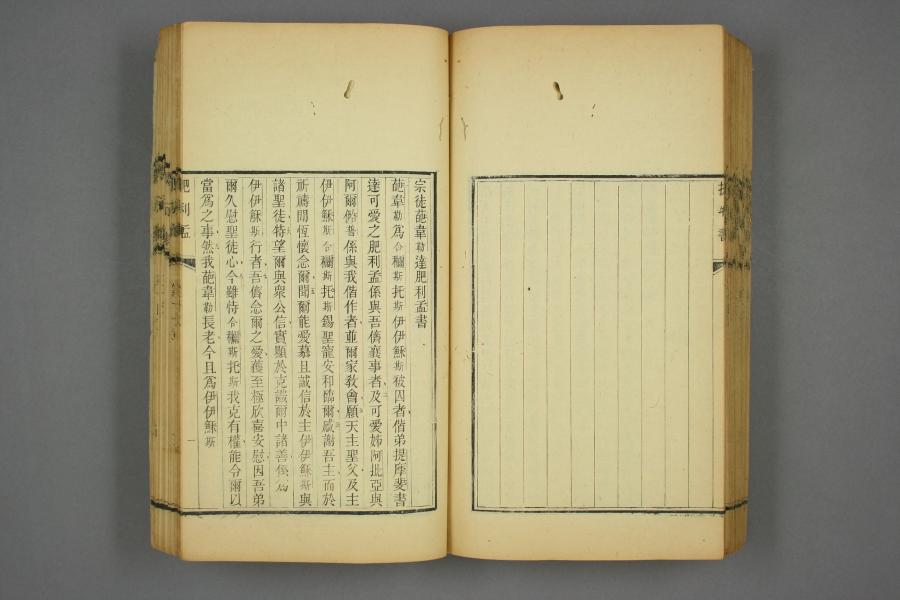 宗徒葩韋勒達肥利孟書
葩韋勒爲合穪斯托斯伊伊穌斯被囚者偕弟提摩斐書
達可愛之肥利孟係與吾儕襄事者及可愛姊阿批亞與
阿爾僃普係與我偕作者並爾家敎會願天主聖父及主
伊伊穌斯合穪斯托斯錫聖寵安和臨爾感謝吾主而於
祈禱間恆懷念爾聞爾能愛慕且誠信於主伊伊穌斯與
諸聖徒特望爾與衆公信實顯於克識爾中諸善係爲
伊伊穌斯行者吾儕念爾之愛蓋至極欣喜安慰因吾弟
爾久慰聖徒心今雖恃合穪斯托斯我克有權能令爾以
當爲之事然我葩韋勒長老今且爲伊伊穌斯
肥利孟
一